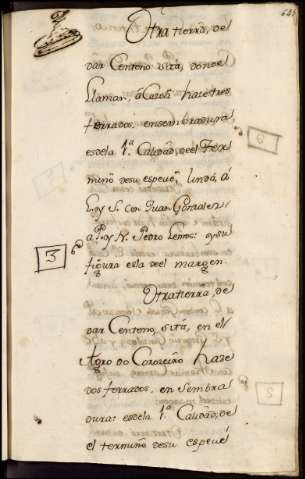 Otra tierra, de
dar Centeno sita, donde
llaman, a Carols haze tres
ferrados, ensembradura
esdela 1ª Calidad, de el Ter
mino desu espeue, linda, a
L. y S. con Juan Gonzalez
a P. y N. Pedro Lemos: ysu
figura es la de el margen.
3
Otra tierra, de
dar Centeno, sita, en el
Agro do Coroceiro haze
dos ferrados, en sembra
dura: es dela 1ª Calidad, de
el termino desu espeué